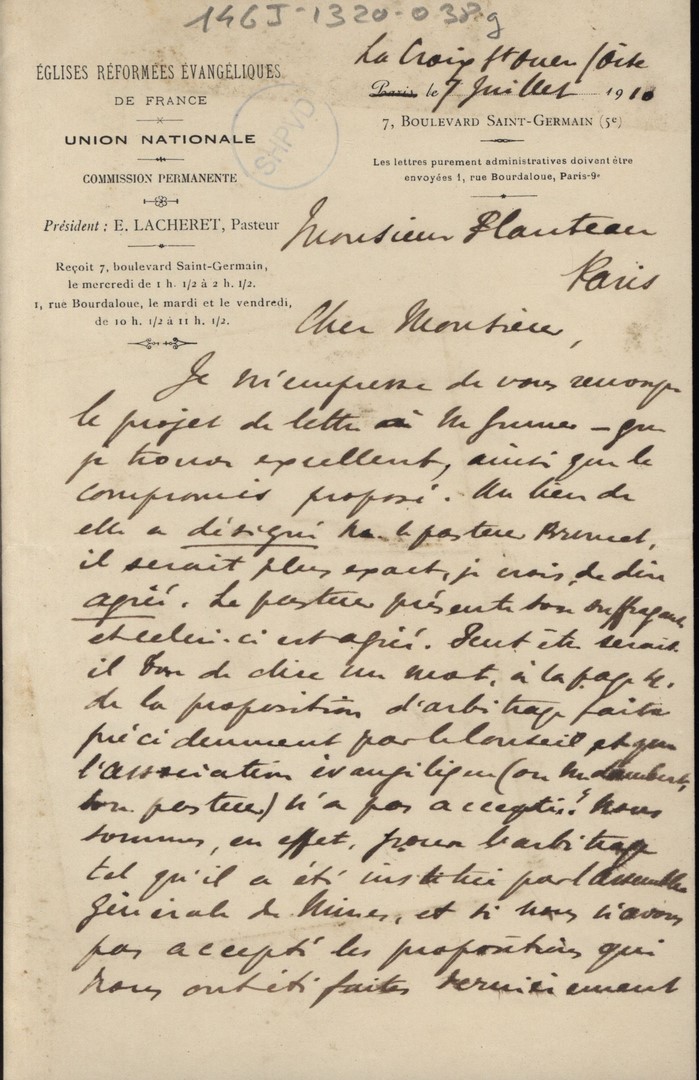 146J-1320-038g
ÉGLISES RÉFORMÉES ÉVANGÉLIQUES
DE FRANCE
UNION NATIONALE
COMMISSION PERMANENTE
Président : E. LACHERET, Pasteur
Reçoit 7, boulevard Saint-Germain,
le mercredi de 1 h. 1/2 à 2 h. 1/2.
1, rue Bourdaloue, le mardi et le vendredi,
de 10 h. 1/2 à 11 h. 1/2.
SHPVD
La Croix St Ouen (Oise
Paris, le 7 Juillet 1910
7, BOULEVARD SAINT-GERMAIN (5e)
Les lettres purement administratives doivent être
envoyées 1, rue Bourdaloue, Paris-9e
Monsieur Planteau
Paris
Cher Monsieur,
Je m'empresse de vous renvoyer
le projet de lettre à M. – que
je trouve excellent, ainsi que le
compromis proposé. Au lieu de
elle a désigné le pasteur
il serait plus exact, je crois, de dire
agréé. Le pasteur présente son suffragant
et celui-ci est agréé. Peut être serait
il bon de dire un mot, à la page 4.
de la proposition d'arbitrage faite
précédemment par le Conseil et que
l'association évangélique (ou M. Lambert,
son pasteur) n'a pas acceptée? Nous
sommes, en effet, pour l'arbitrage
tel qu'il a été institué par l'Assemblée
Générale de Nimes, et si nous n'avons
pas accepté les propositions qui
nous ont été faites dernièrement